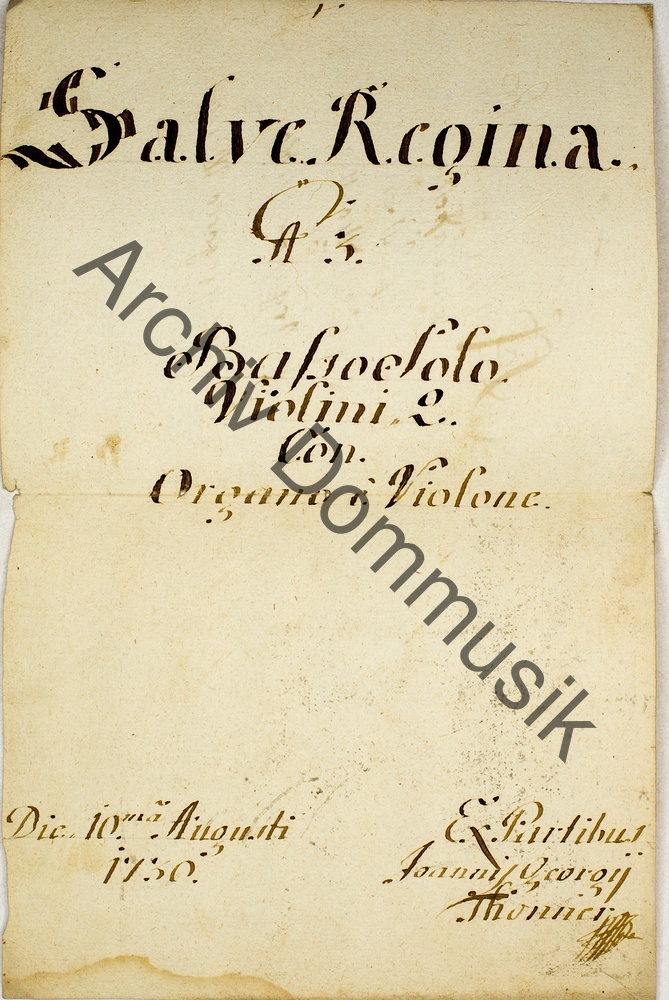 Salve Regina.
A 3.
Basso Solo.
Violini 2.
Con.
Organo è Violone.
Archiv Dommusik
Die 10.mâ Augusti
1730.
Ex Partibus
Joannis Georgij
Thonner